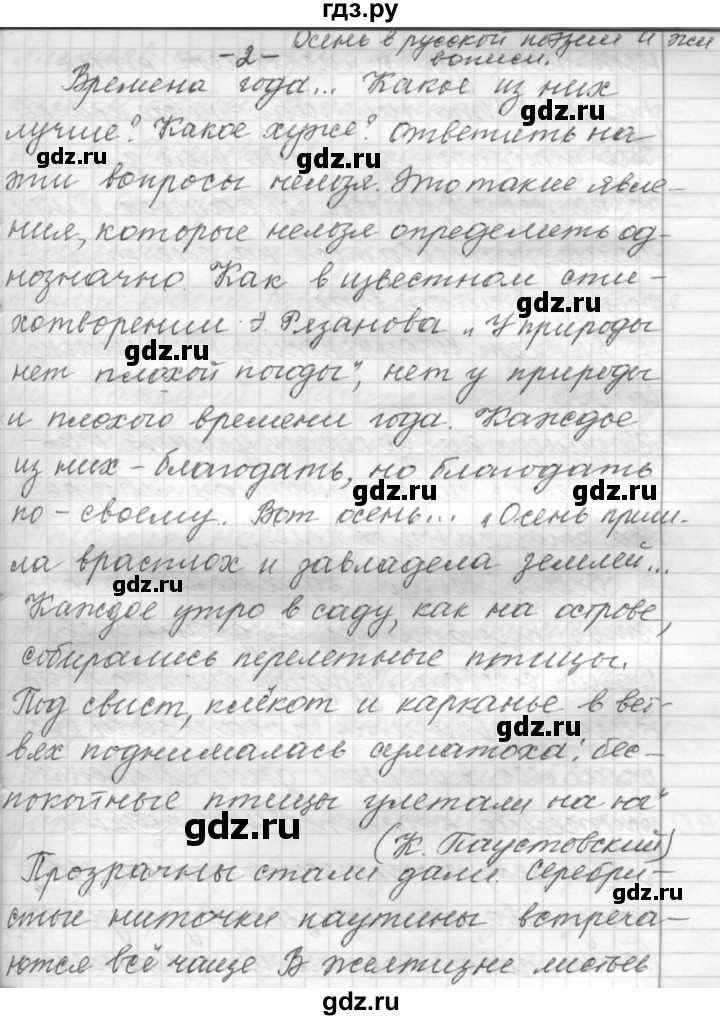 гдз.ру
Осень в русской поэзии и жи
-2- вописи.
Времена года... Какое из них
лучше? Какое хуже? Ответить на
gdz.ru gdz.ru
эти вопросы нельзя. Это такие явле-
ния, которые нельзя определить од-
нозначно. Как в известном сти-
gdz.ru
хотворении Э. Рязанова „У природы
gdz.ru
нет плохой погоды", нет у природы
и плохого времени года. Каждое
из них - благодать, но благодать
gdz.ru gdz.ru
по-своему. Вот осень... „Осень приш-
ла врасплох и завладела землей...
gdz.ru
Каждое утро в саду, как на острове,
собирались перелетные птицы.
Под свист, клёкот и карканье в вет-
gdz.ru
вях поднималась суматоха; бес-
покойные птицы улетали на юг"
gdz.ru
(К. Паустовский)
Прозрачны стали дали. Серебри-
gdz.ru
стые ниточки паутины встреча-
ются всё чаще. В желтизне листьев
gdz.ru